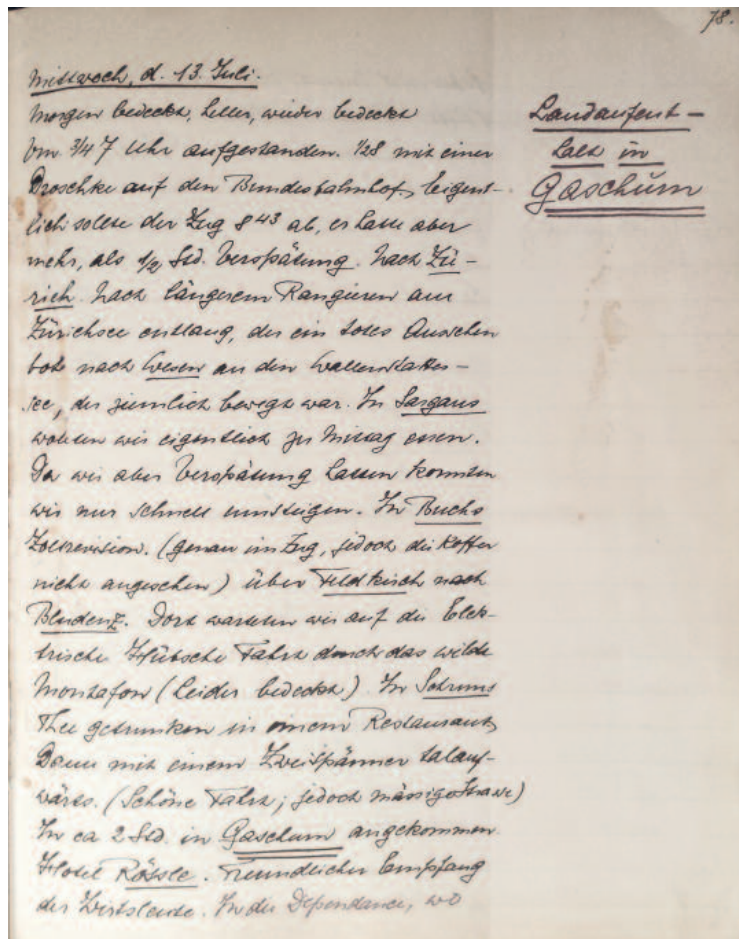 78.
Mittwoch, d. 13. Juli.
Morgen bedeckt, heller, wieder bedeckt
Um 3/4 7 Uhr aufgestanden. 1/28 mit einer
Droschke auf den Bundesbahnhof, eigent-
lich sollte der Zug 8 43 ab, er hatte aber
mehr, als 1/2 Std. Verspätung. Nach Zü-
rich. Nach längerem Rangieren am
Zürichsee entlang, der ein totes Aussehen
bot nach Wesen an den Wallenstatter-
see, der ziemlich bewegt war. In Sargans
wollten wir eigentlich zu Mittag essen.
Da wir aber Verspätung hatten konnten
wir nur schnell umsteigen. In Buchs
Zollrevision. (genau im Zug, jedoch die Koffer
nicht angesehen) über Feldkirch nach
Bludenz. Dort warteten wir auf die Elek-
trische Hübsche Fahrt durch das wilde
Montafon (leider bedeckt). In Schruns
Thee getrunken in einem Restaurant,
Dann mit einem Zweispänner talauf-
wärts. (Schöne Fahrt; jedoch mässige Strasse)
In ca 2 Std. in Gaschurn angekommen.
Hotel Rössle. Freundlicher Empfang
der Wirtsleute. In der Dependance, wo
Landaufent-
halt in
Gaschurn